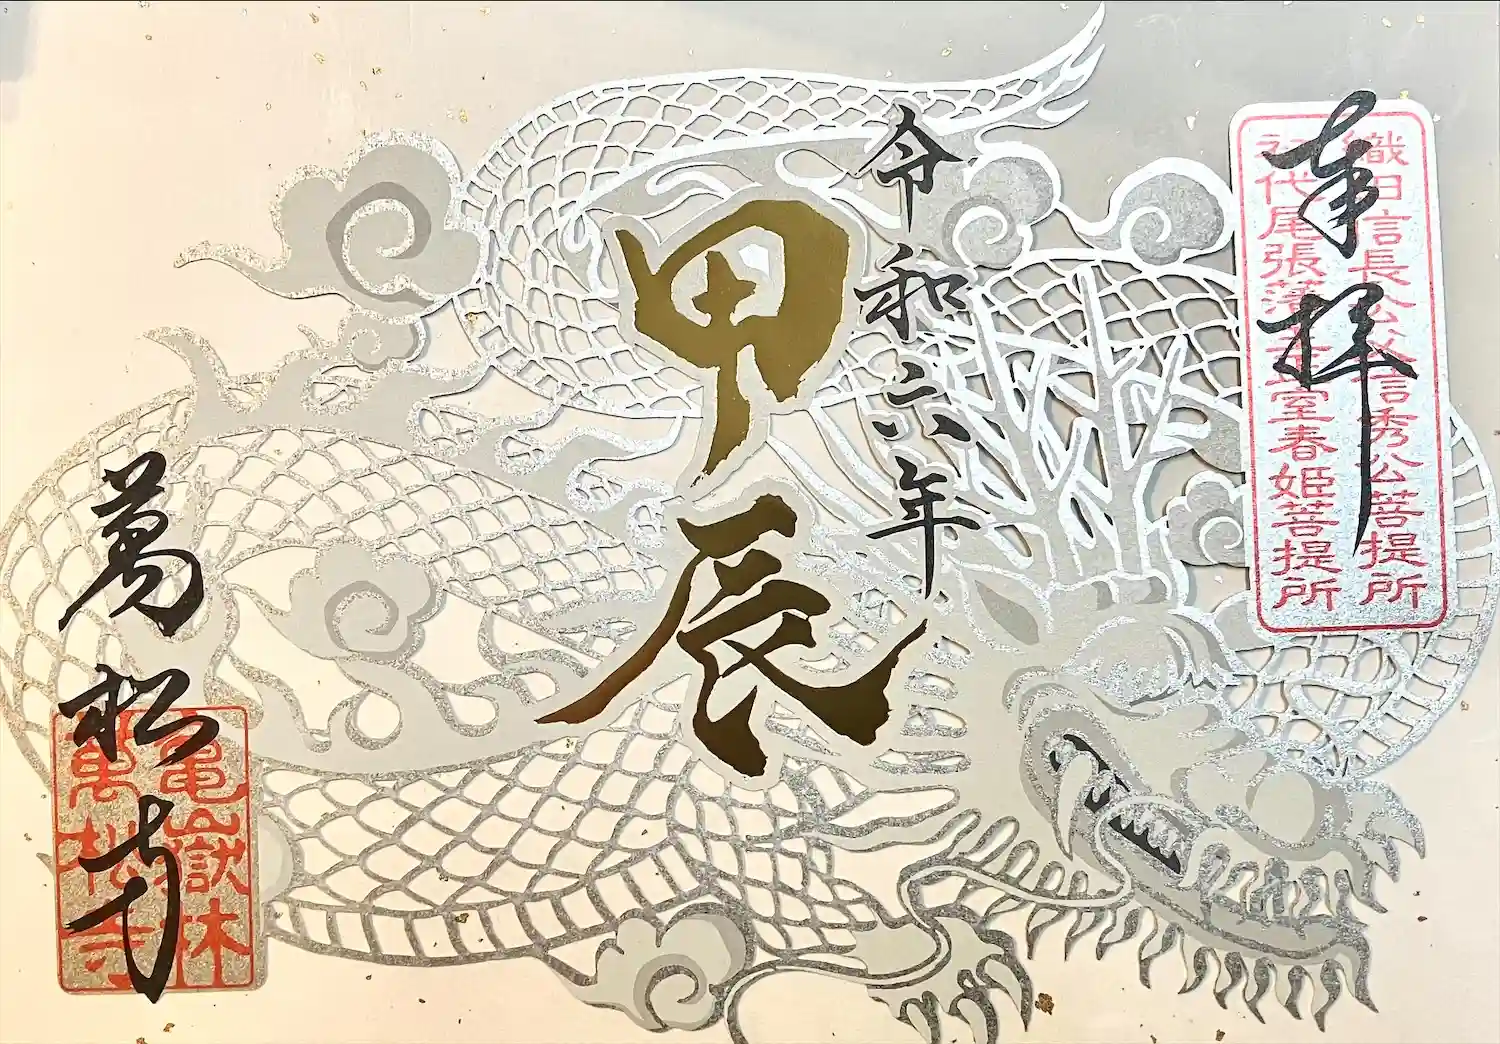 奉拝
織田信長公父信秀公菩提所
初代尾張藩主正室春姫菩提所
令和六年
甲辰
萬松寺
亀岳林
萬松寺